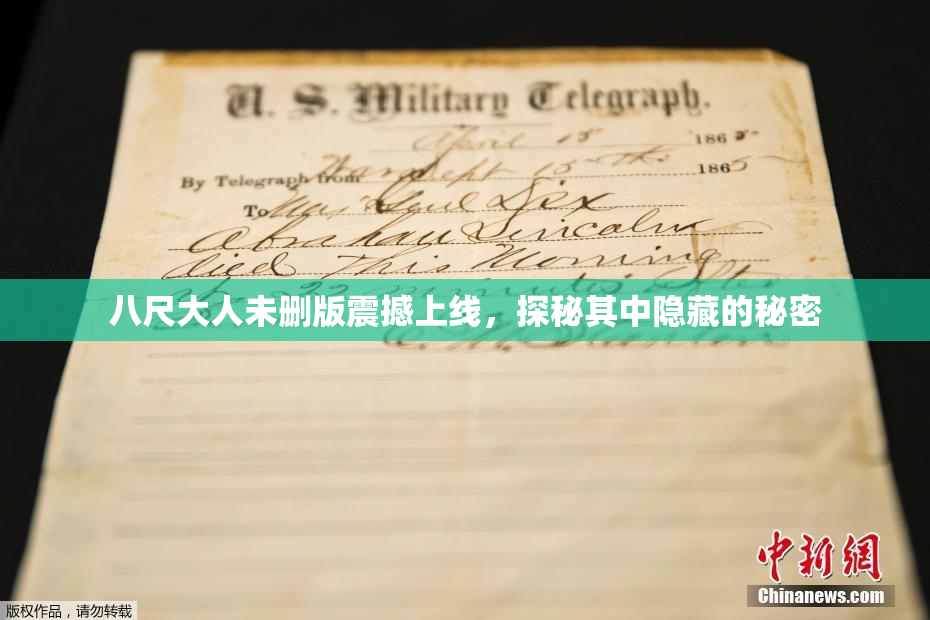 U. S. Military Telegraph.
April 15 1865
By Telegraph from War Dept 15th 1865
To Maj Genl Dix
Abraham Lincoln
died This Morning
22 minutes after
八尺大人未删版震撼上线，探秘其中隐藏的秘密
E. M. Stanton
中新网
Chinanews.com
版权作品，请勿转载